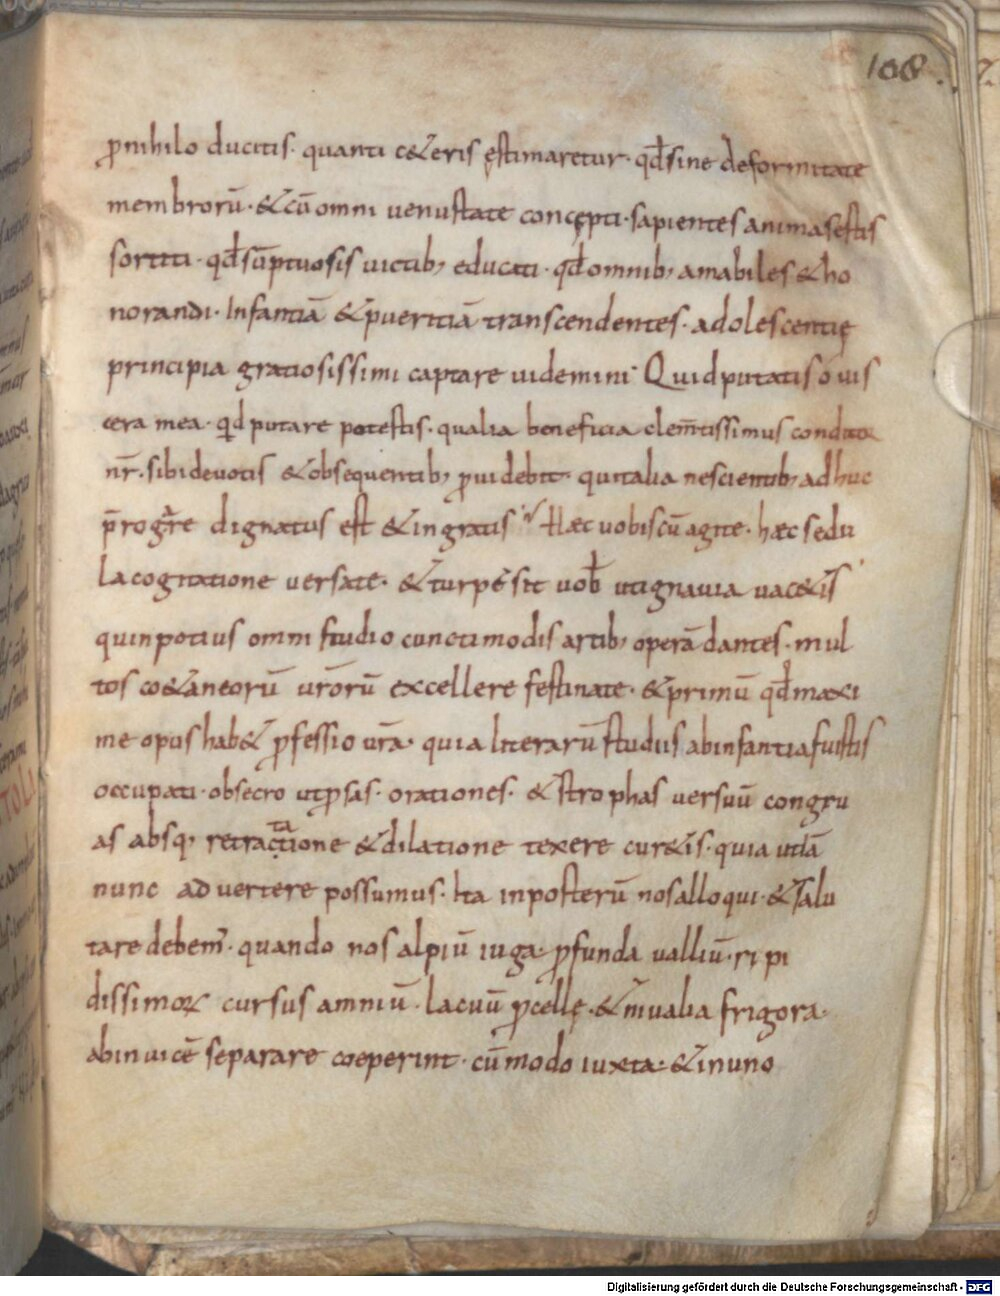 108.
ꝓnihilo ducitis· quanti c&eris ęstimaretur· qđ sine deformitate
membrorū· & cū omni venustate concępti· sapientes animas estis
sortiti· qđ sūptuosis uictib; educati· qđ omnib; amabiles & ho
norandi· Infantiā & pueritiā transcendentes· adolescentię
principia gratiosissimi captare uidemini· Quid putatis o uis
cera mea· qid putare potestis· qualia beneficia clem̄tissimus conditor
nr̄· sibi deuotis & obsequentib; ꝓuidebit· qui talia nescientib; adhuc
p̄rogr̄e dignatus est & ingratis· Hæc uobiscū agite· hæc sedu
la cogitatione versate· & turpe sit uob̄ ut ignauia uac&is
quin potius omni studio cunctimodis artib; operā dantes· mul
tos co&aneorū ur̄orū excellere festinate· & primū qđ maxi
me opus hab& ꝓfessio ur̄a· quia literarū studiis ab infantia fuistis
occupati· obsecro ut ꝓsas· orationes· & strophas versuū congru
as absq; retractatione & dilatione texere cur&is· quia utiā
nunc advertere possumus· Ita in posterū nos alloqui· & salu
tare debem̄· quando nos alpiū iuga· ꝓfunda valliū· ripi
dissimoꝝ cursus amniū· lacuū ꝓcellę· & niualia frigora·
abinuicē separare coeperint· cū modo iuxta· & in uno
Digitalisierung gefördert durch die Deutsche Forschungsgemeinschaft - DFG